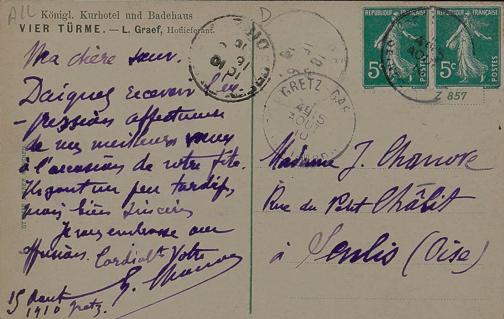 ALL
Königl. Kurhotel und Badehaus
VIER TÜRME. — L. Graef, Hoflieferant.
Ma chère sœur.
Daignez recevoir l'ex-
pression affectueuse
de mes meilleurs vœux
à l'occasion de votre fête.
Ils sont un peu tardifs,
mais bien sincères
Je vous embrasse avec
effusion. Cordialt Votre
15 Aout
1910 Gretz.
D
GRETZ GARE
RÉPUBLIQUE FRANÇAISE
5c
POSTES
RÉPUBLIQUE FRANÇAISE
5c
POSTES
Z 857
Madame J.
Rue du Petit Châlit
à Senlis (Oise)